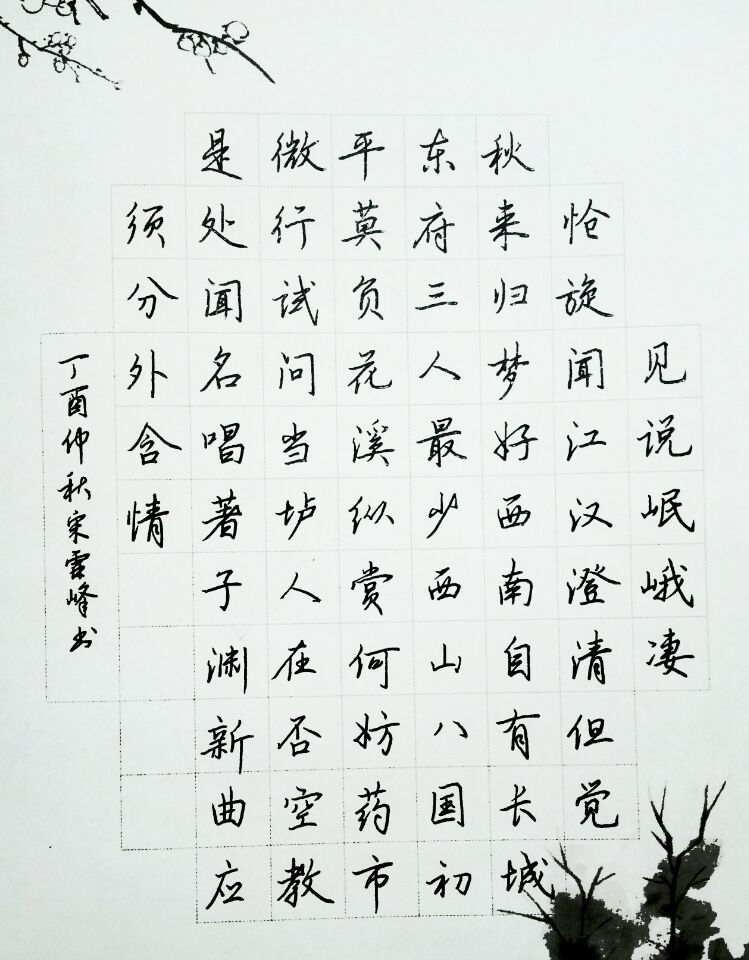 见说岷峨凄
恰旋闻江汉澄清但觉
秋来归梦好西南自有长城
东府三人最少西山八国初
平莫负花溪纵赏何妨药市
微行试问当垆人在否空教
是处闻名唱著子渊新曲应
须分外含情
丁酉仲秋宋云峰书